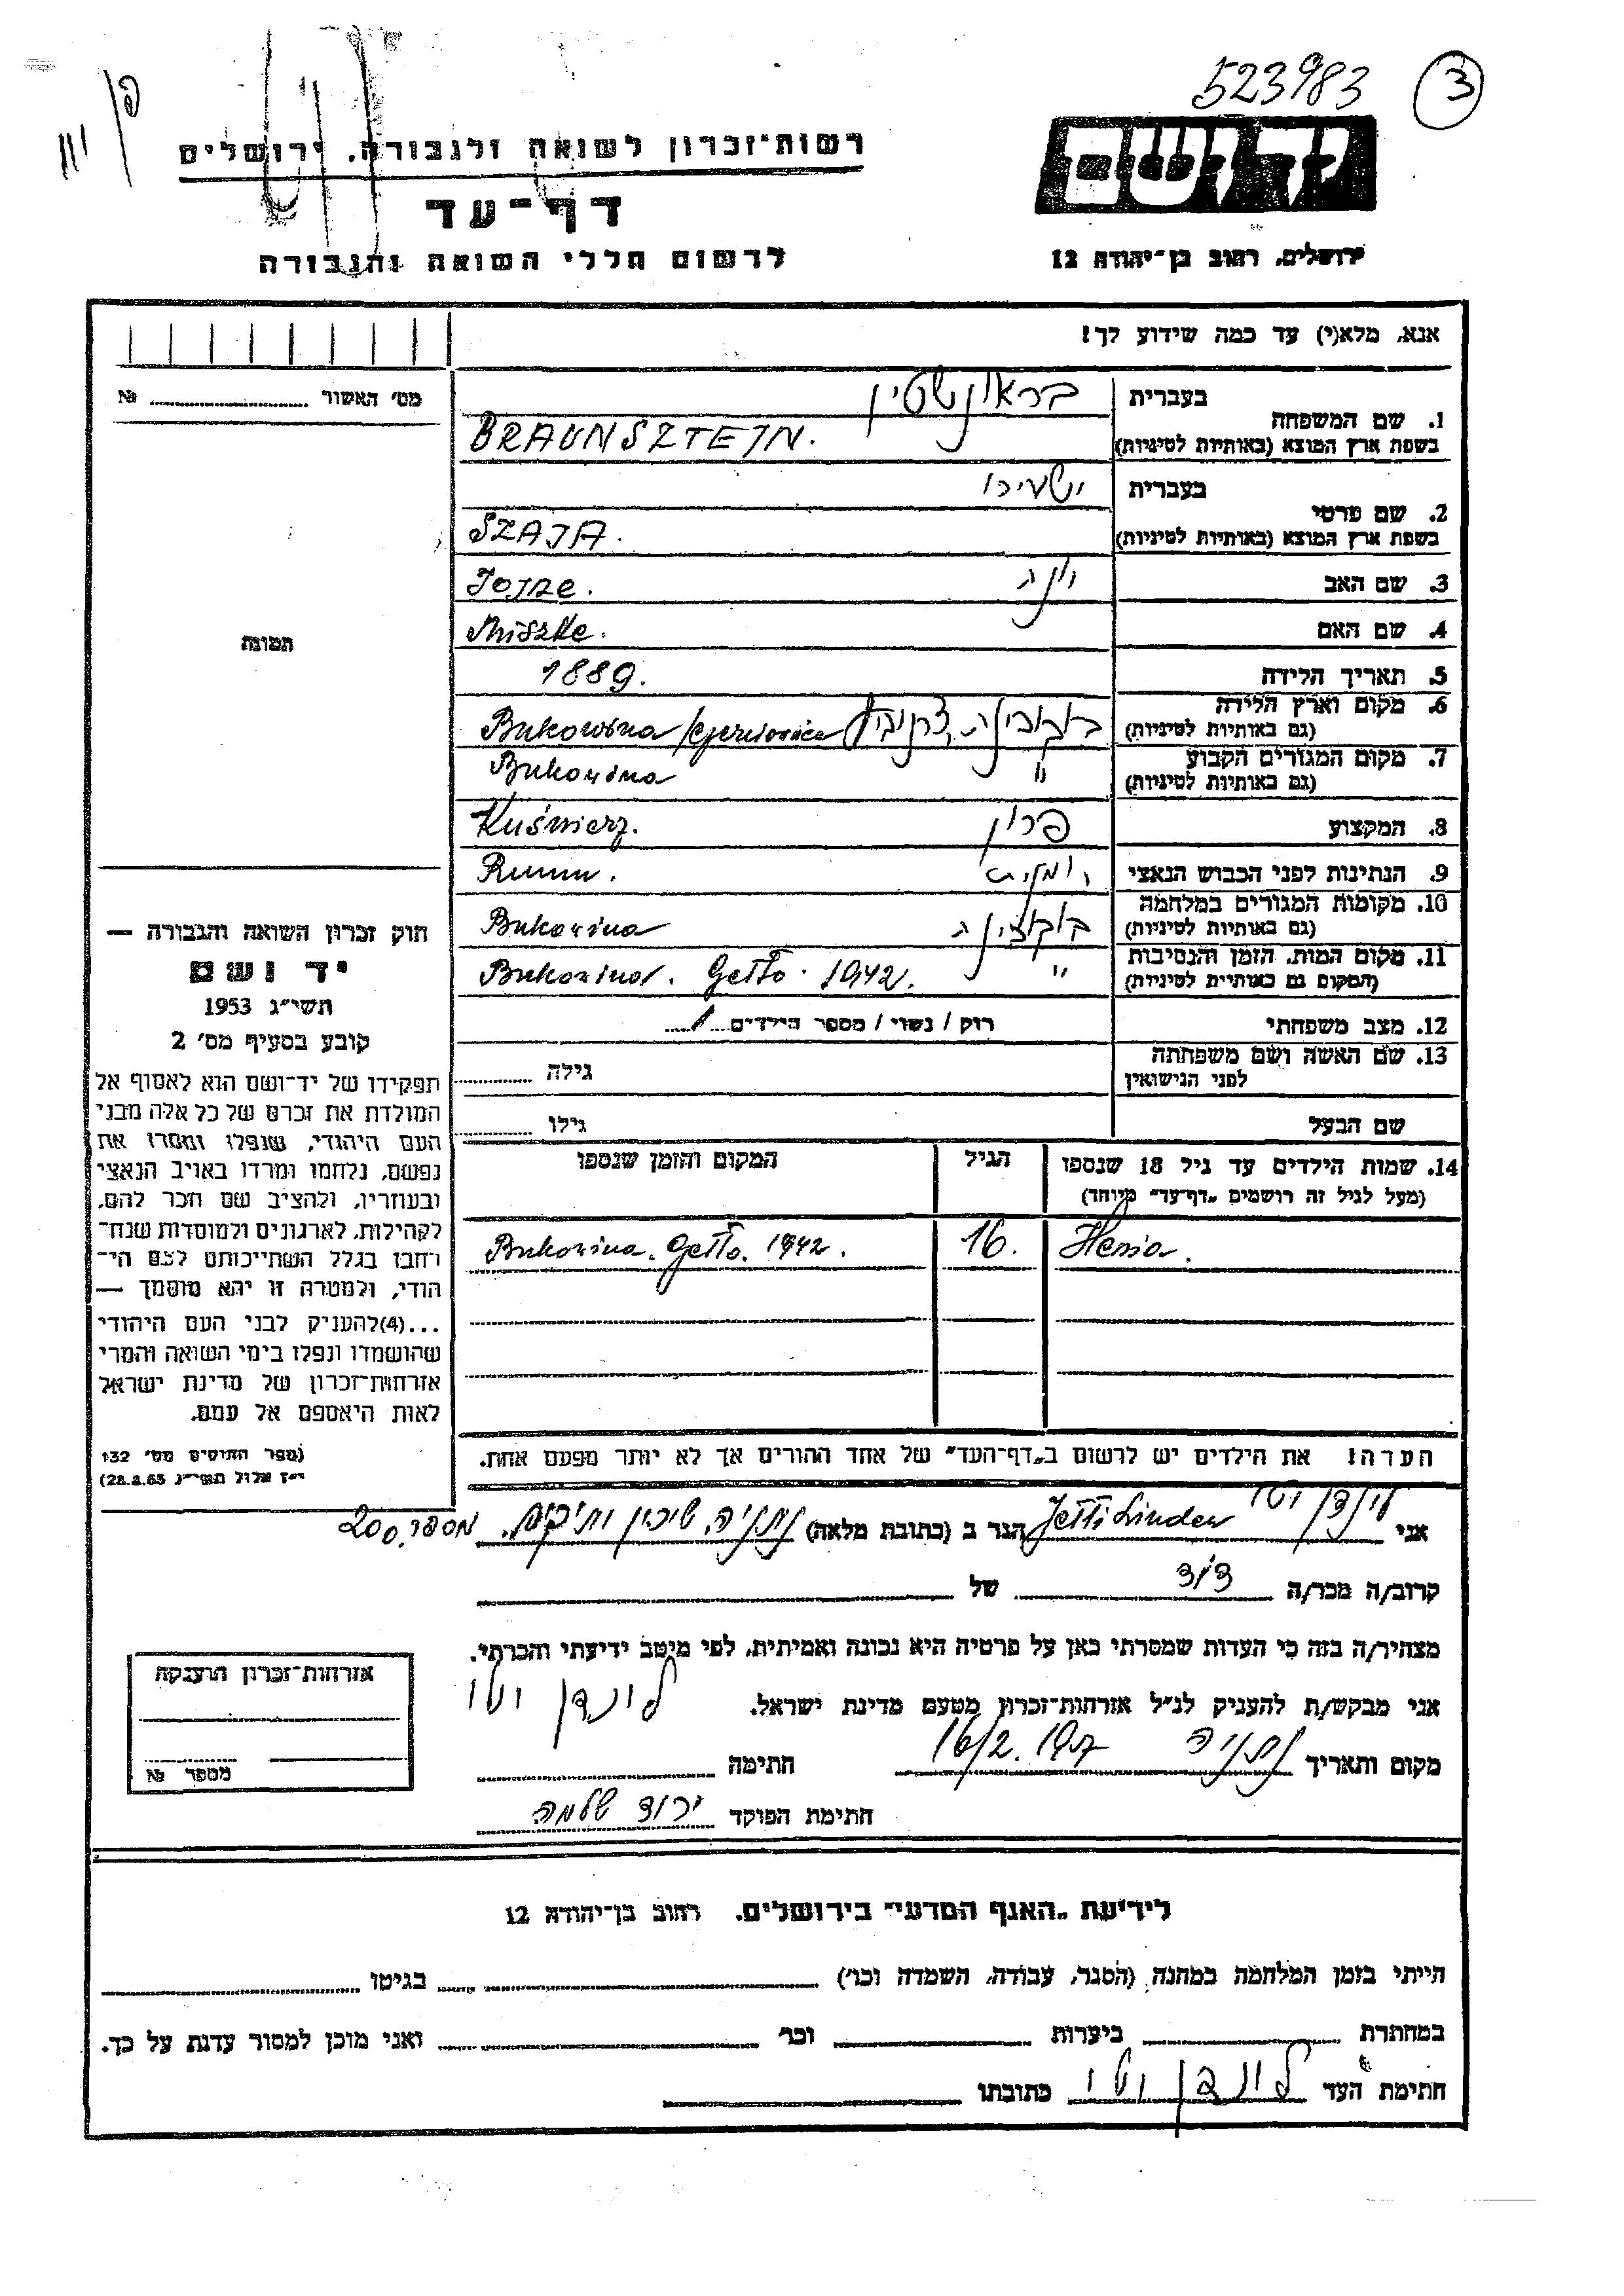 523983 3
יד ושם
רשות־זכרון לשואה ולגבורה, ירושלים
דף־עד
לרשום חללי השואה והגבורה
ירושלים, רחוב בן־יהודה 12
אנא, מלא(י) עד כמה שידוע לך!
מס׳ האשור №
1. שם המשפחה
בעברית בראונשטיין
בשפת ארץ המוצא (באותיות לטיניות) BRAUNSZTEJN.
2. שם פרטי
בעברית ישעיהו
בשפת ארץ המוצא (באותיות לטיניות) SZAJA.
3. שם האב יונה Jojne.
4. שם האם
5. תאריך הלידה 1889.
6. מקום וארץ הלידה
(גם באותיות לטיניות) Bukowina
7. מקום המגורים הקבוע
(גם באותיות לטיניות) " Bukowina
8. המקצוע פרון Kuśnierz.
9. הנתינות לפני הכבוש הנאצי Rumun.
10. מקומות המגורים במלחמה
(גם באותיות לטיניות) בוקובינה Bukowina
11. מקום המות, הזמן והנסיבות
(המקום גם באותיות לטיניות) " Bukowina. Getto. 1942.
12. מצב משפחתי רוק / נשוי / מספר הילדים 1
13. שם האשה ושם משפחתה
לפני הנישואין גילה
שם הבעל גילו
14. שמות הילדים עד גיל 18 שנספו הגיל המקום והזמן שנספו
(מעל לגיל זה רושמים „דף־עד" מיוחד)
Henia. 16. Bukowina. Getto. 1942.
הערה! את הילדים יש לרשום ב„דף־העד" של אחד ההורים אך לא יותר מפעם אחת.
תמונה
חוק זכרון השואה והגבורה —
יד ושם
תשי״ג 1953
קובע בסעיף מס׳ 2
תפקידו של יד־ושם הוא לאסוף אל
המולדת את זכרם של כל אלה מבני
העם היהודי, שנפלו ומסרו את
נפשם, נלחמו ומרדו באויב הנאצי
ובעוזריו, ולהציב שם וזכר להם,
לקהילות, לארגונים ולמוסדות שנח־
רחבו בגלל השתייכותם לעם הי־
הודי, ולמטרה זו יהא מוסמך —
...(4)להעניק לבני העם היהודי
שהושמדו ונפלו בימי השואה והמרי
אזרחות־זכרון של מדינת ישראל
לאות היאספם אל עמם.
(ספר החוקים מס׳ 132
י״ז אלול תשי״ג 28.8.53)
אני לינדן יטי Jetti Linden הגר ב (כתובת מלאה) נתניה, שיכון ותיקים, מספר 200
קרוב/ה מכר/ה דוד של
מצהיר/ה בזה כי העדות שמסרתי כאן על פרטיה היא נכונה ואמיתית, לפי מיטב ידיעתי והכרתי.
אני מבקש/ת להעניק לנ״ל אזרחות־זכרון מטעם מדינת ישראל. לינדן יטי
מקום ותאריך נתניה 16/2.1957 חתימה
חתימת הפוקד שלמה
אזרחות־זכרון הוענקה
מספר №
לידיעת „האגף המדעי" בירושלים, רחוב בן־יהודה 12
הייתי בזמן המלחמה במחנה (הסגר, עבודה, השמדה וכו׳) בגיטו
במחתרת ביערות וכו׳ ואני מוכן למסור עדות על כך.
חתימת העד לינדן יטי כתובתו